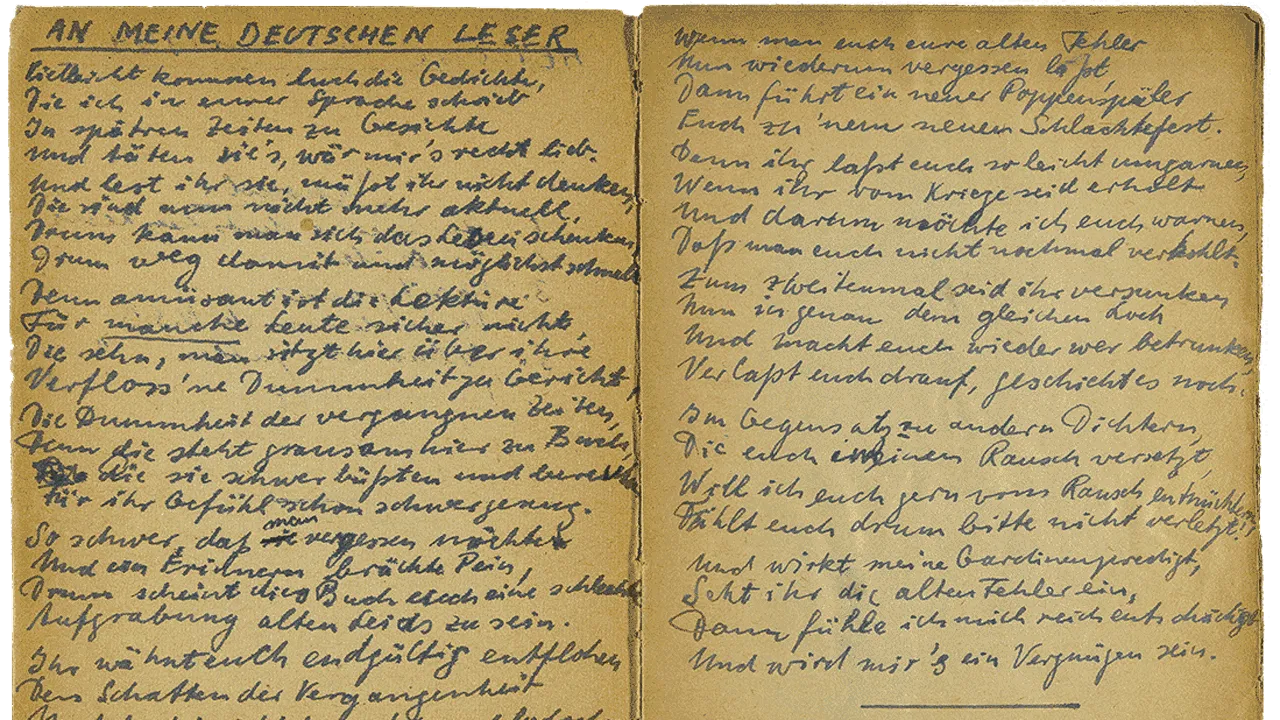 AN MEINE DEUTSCHEN LESER
Vielleicht kommen Euch die Gedichte,
Die ich in eurer Sprache schrieb
In spätren Zeiten zu Gesichte
Und täten sie's, wär mir's recht lieb.
Und lest ihr sie, müßt ihr nicht denken,
Die sind nun nicht mehr aktuell,
Drum kann man sich das Lesen schenken,
Drum weg damit und möglichst schnell
Denn amüsant ist die Lektüre
Für manche Leute sicher nicht,
Die sehn, man sitzt hier über ihre
Verfloss'ne Dummheit zu Gericht,
Die Dummheit der vergangnen Zeiten,
Denn die steht grausam hier zu Buch,
die sie schwer büßten und bereuten
Für ihr Gefühl schon schwer genug.
So schwer, daß man vergessen möchte
Und ein Erinnern brächte Pein,
Drum scheint dies Buch euch eine schlechte
Aufgrabung alten Leids zu sein.
Ihr wähnt euch endgültig entflohen
Dem Schatten der Vergangenheit
Wenn man euch eure alten Fehler
Nun wiederum vergessen läßt,
Dann führt ein neuer Poppenspäler
Euch zu 'nem neuen Schlachtefest.
Denn ihr laßt euch so leicht umgarnen,
Wenn ihr vom Kriege seid erholt
Und darum möchte ich euch warnen,
Daß man euch nicht nochmal verkohlt.
Zum zweitenmal seid ihr versunken
Nun in genau dem gleichen Loch
Und macht euch wieder wer betrunken,
Verlaßt euch drauf, geschieht es noch.
Im Gegensatz zu andern Dichtern,
Die euch in einen Rausch versetzt,
Will ich euch gern vom Rausch entnüchtern,
Fühlt euch drum bitte nicht verletzt!
Und wirkt meine Gardinenpredigt,
Seht ihr die alten Fehler ein,
Dann fühle ich mich reich entschädigt
Und wird mir's ein Vergnügen sein.